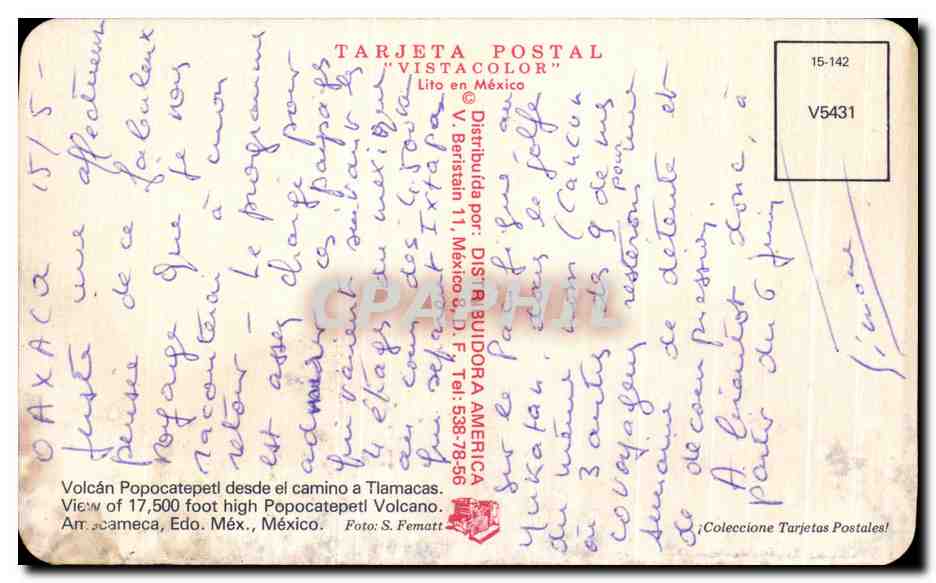 TARJETA POSTAL
"VISTACOLOR"
Lito en México
15-142
V5431
© Distribuída por: DISTRIBUIDORA AMERICA
V. Beristain 11, México 8, D. F. Tel: 538-78-56
OAXACA 15/5 -
Juste une affectueuse
pensée de ce fabuleux
voyage que je vous
raconterai à mon
retour - Le programme
est assez chargé pour
ces paysages
qui varient suivant les
étages du mexique
au cours des 4.500 km
qui séparent Ixtapa
sur le pacifique au
Yukatan dans le golfe
du même nom (Cancun
à 3 autres des 9 de nos
covoyageurs resterons pour une
semaine de détente et
de décompression,
A bientôt donc, à
partir du 6 Juin
Simone
CPAPHIL
Volcán Popocatepetl desde el camino a Tlamacas.
View of 17,500 foot high Popocatepetl Volcano.
Amecameca, Edo. Méx., México. Foto: S. Fematt
¡Coleccione Tarjetas Postales!